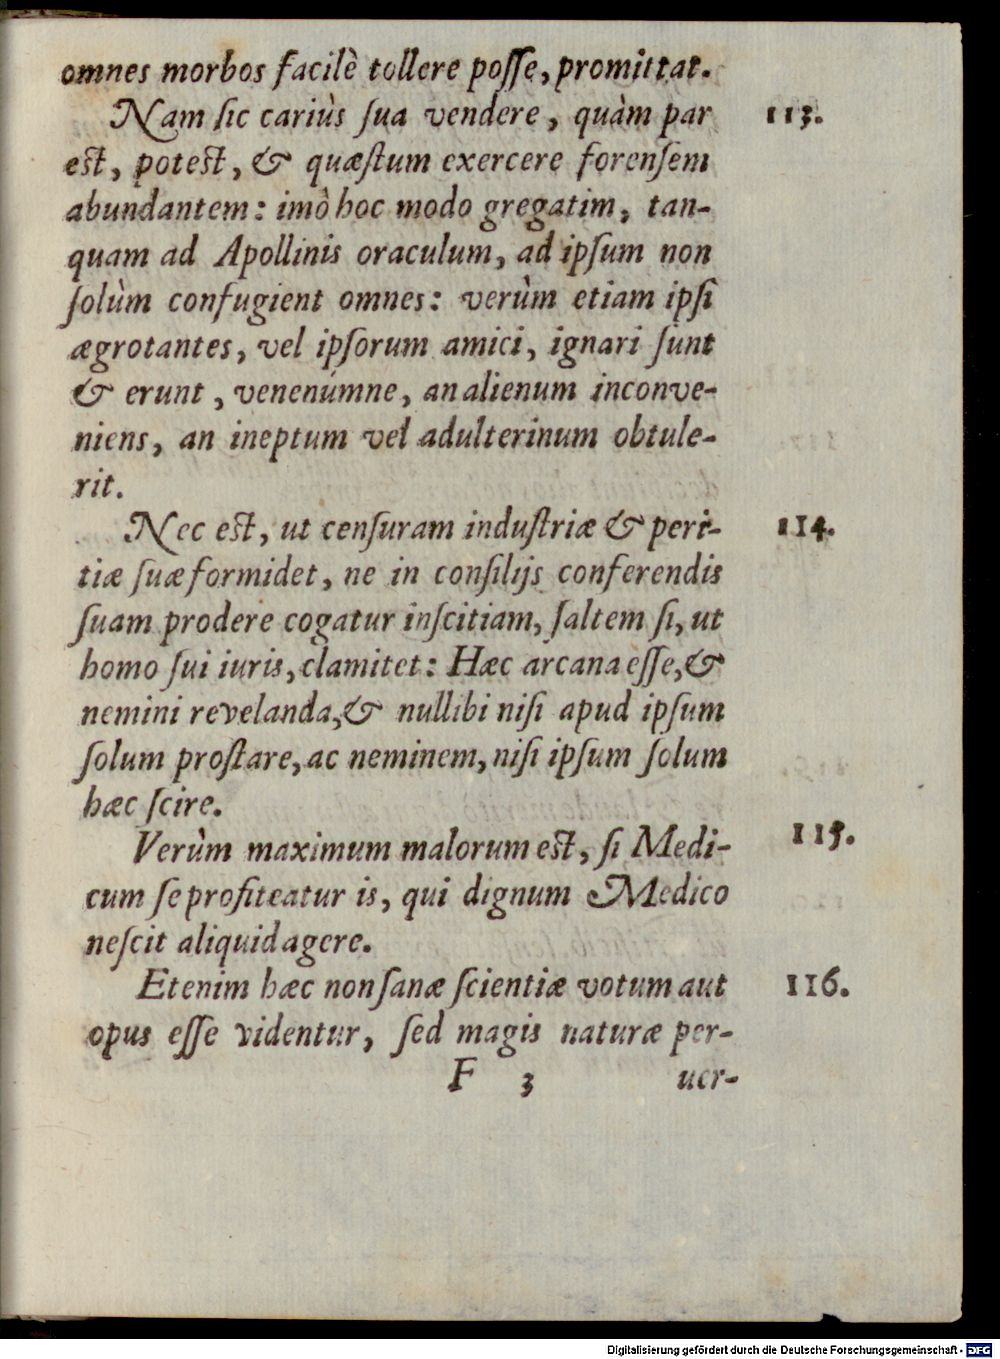 omnes morbos facilè tollere posse, promittat.
Nam sic cariùs sua vendere, quàm par 113.
est, potest, & quæstum exercere forensem
abundantem: imò hoc modo gregatim, tan-
quam ad Apollinis oraculum, ad ipsum non
solùm confugient omnes: verùm etiam ipsi
ægrotantes, vel ipsorum amici, ignari sunt
& erunt, venenúmne, an alienum inconve-
niens, an ineptum vel adulterinum obtule-
rit.
Nec est, ut censuram industriæ & peri- 114.
tiæ suæ formidet, ne in consilijs conferendis
suam prodere cogatur inscitiam, saltem si, ut
homo sui iuris, clamitet: Hæc arcana esse, &
nemini revelanda, & nullibi nisi apud ipsum
solum prostare, ac neminem, nisi ipsum solum
hæc scire.
Verùm maximum malorum est, si Medi- 115.
cum se profiteatur is, qui dignum Medico
nescit aliquid agere.
Etenim hæc non sanæ scientiæ votum aut 116.
opus esse videntur, sed magis naturæ per-
F 3 uer-
Digitalisierung gefördert durch die Deutsche Forschungsgemeinschaft - DFG